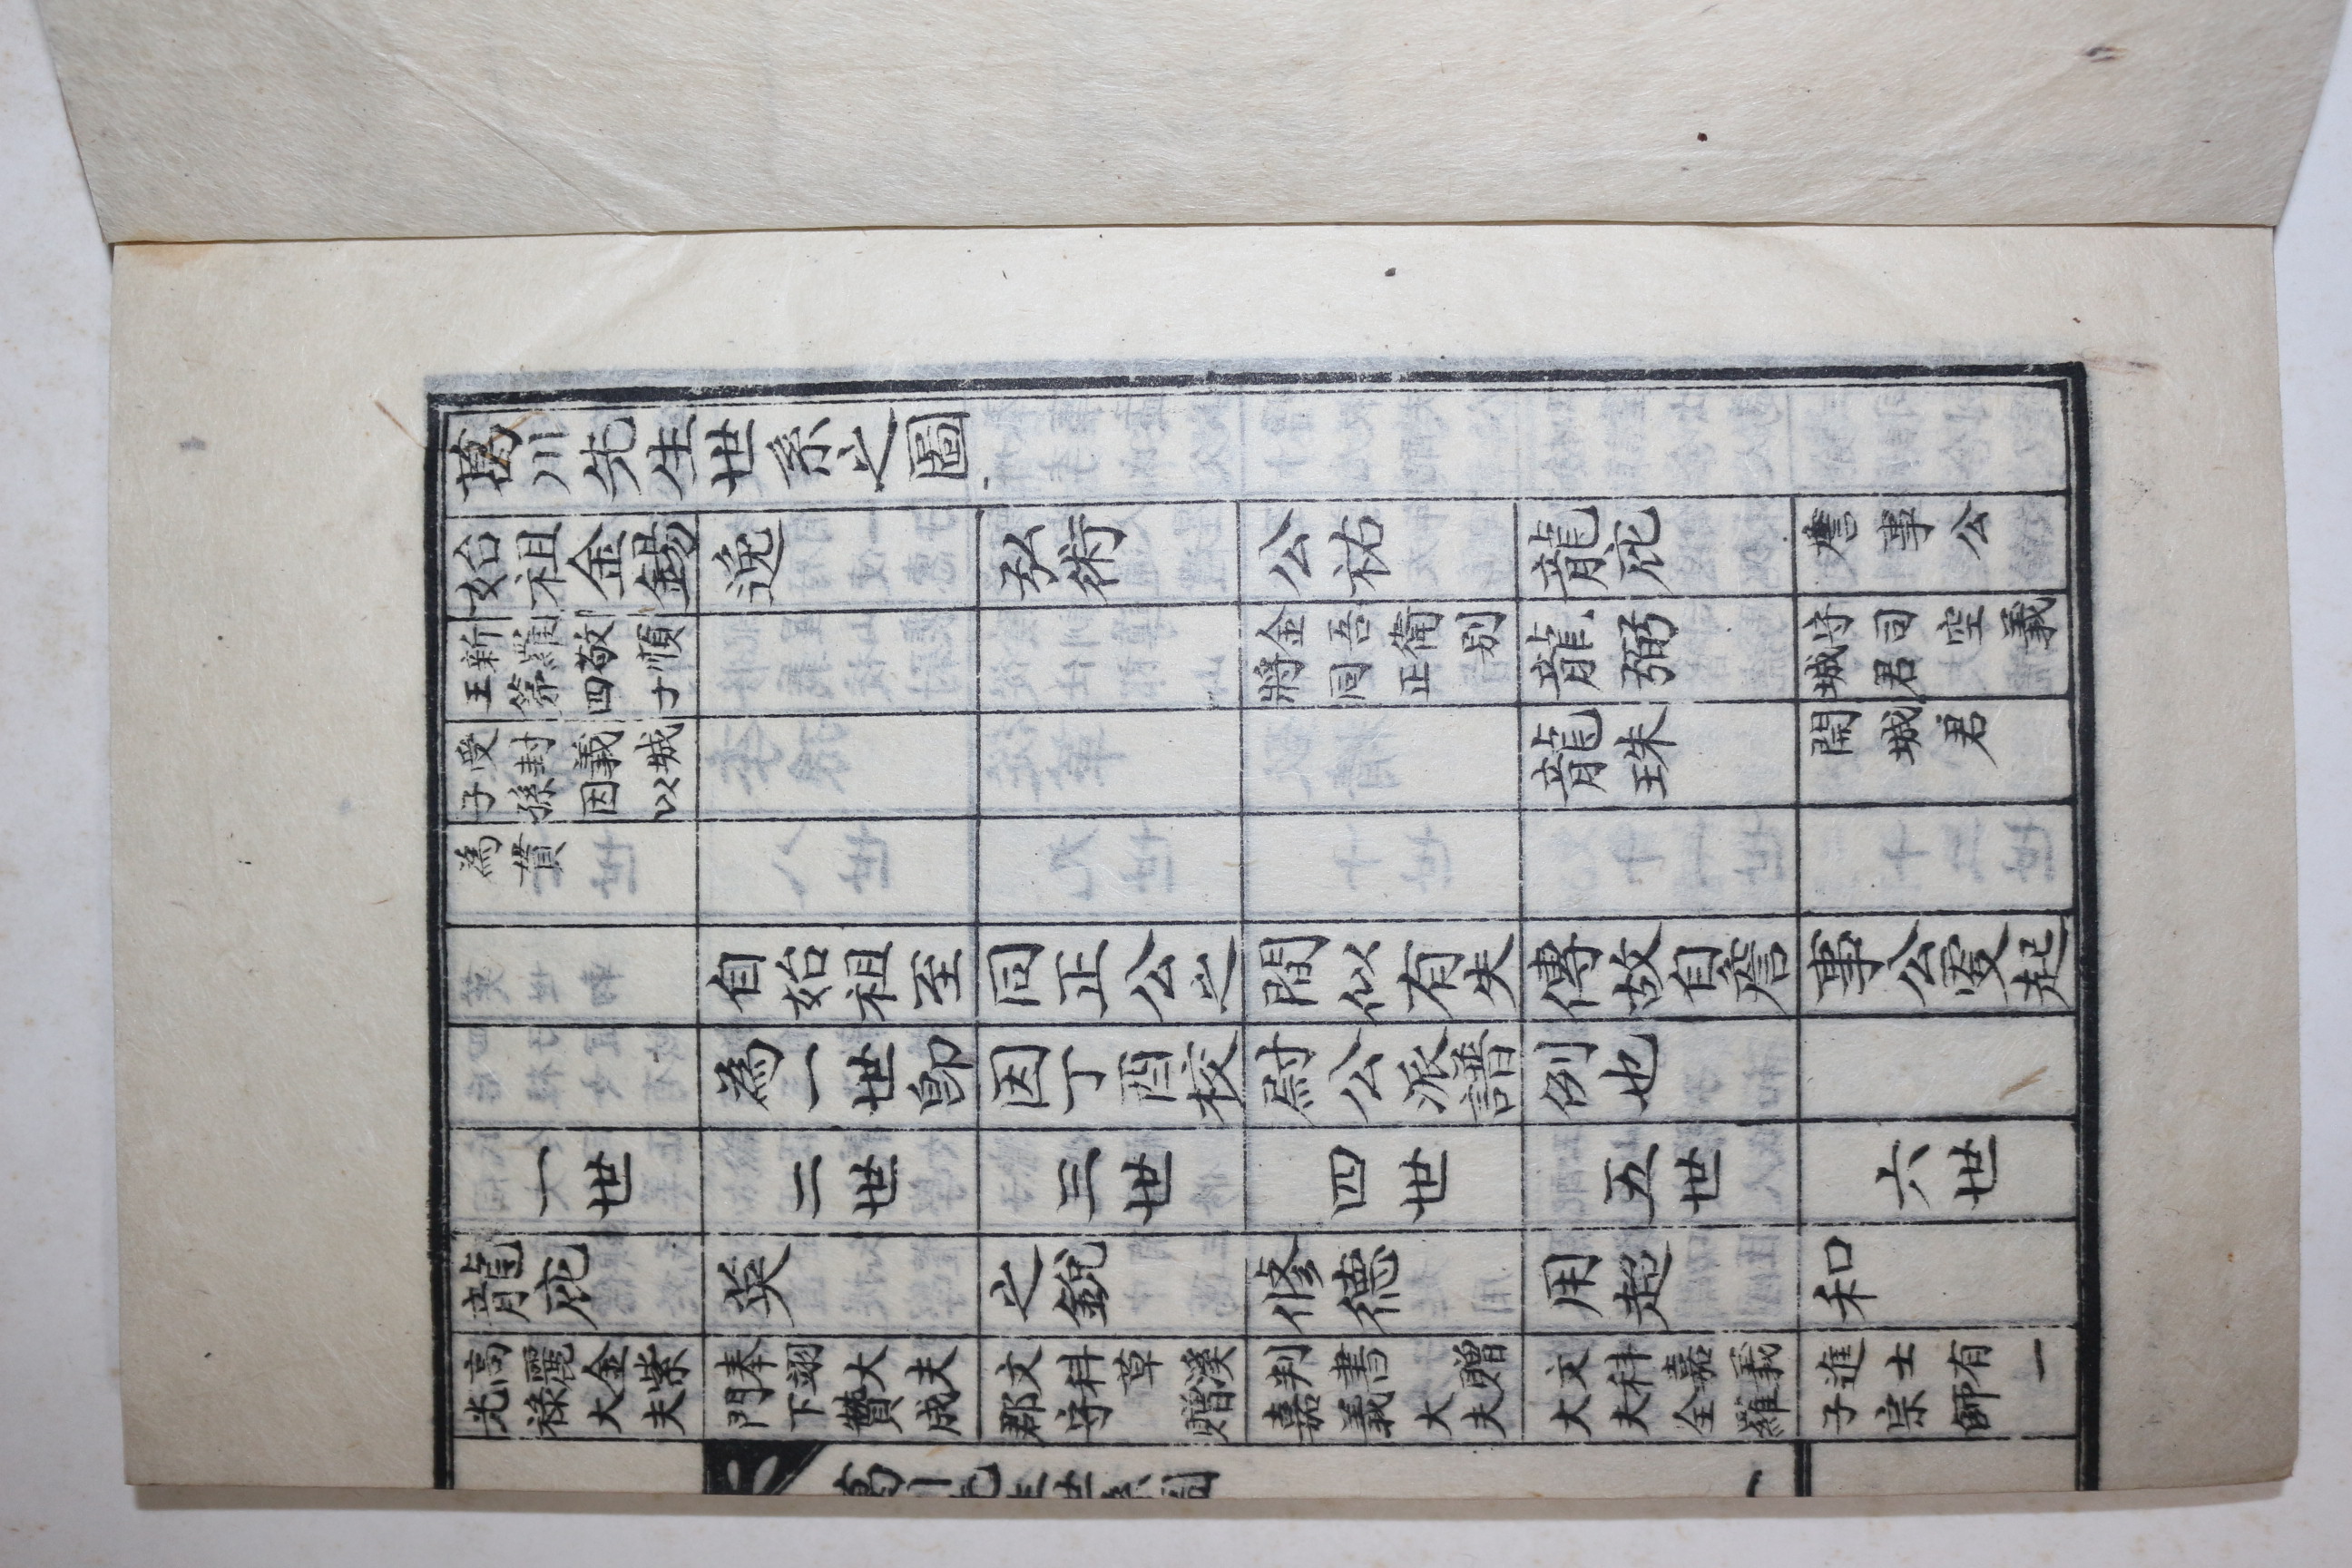 葛川先生世系之圖
始祖金錫
新羅敬順
王第四子
受封義城
子孫因以
為貫
逸
弘術
公祐
金吾衛別
將同正
龍庇
龍弼
龍珠
詹事公
守司空義
城君
開城君
自始祖至同正公之間似有失傳故自詹事公更起
為一世卽因丁酉校尉公派譜例也
一世
二世
三世
四世
五世
六世
龍庇
英
之銳
修德
用超
和
高麗金紫
光祿大夫
奉翊大夫
門下贊成
文科草溪
郡守 贈
判書 贈
嘉義大夫
文科嘉義
大夫全羅
進士有一
子宗師
葛川先生世系圖
一